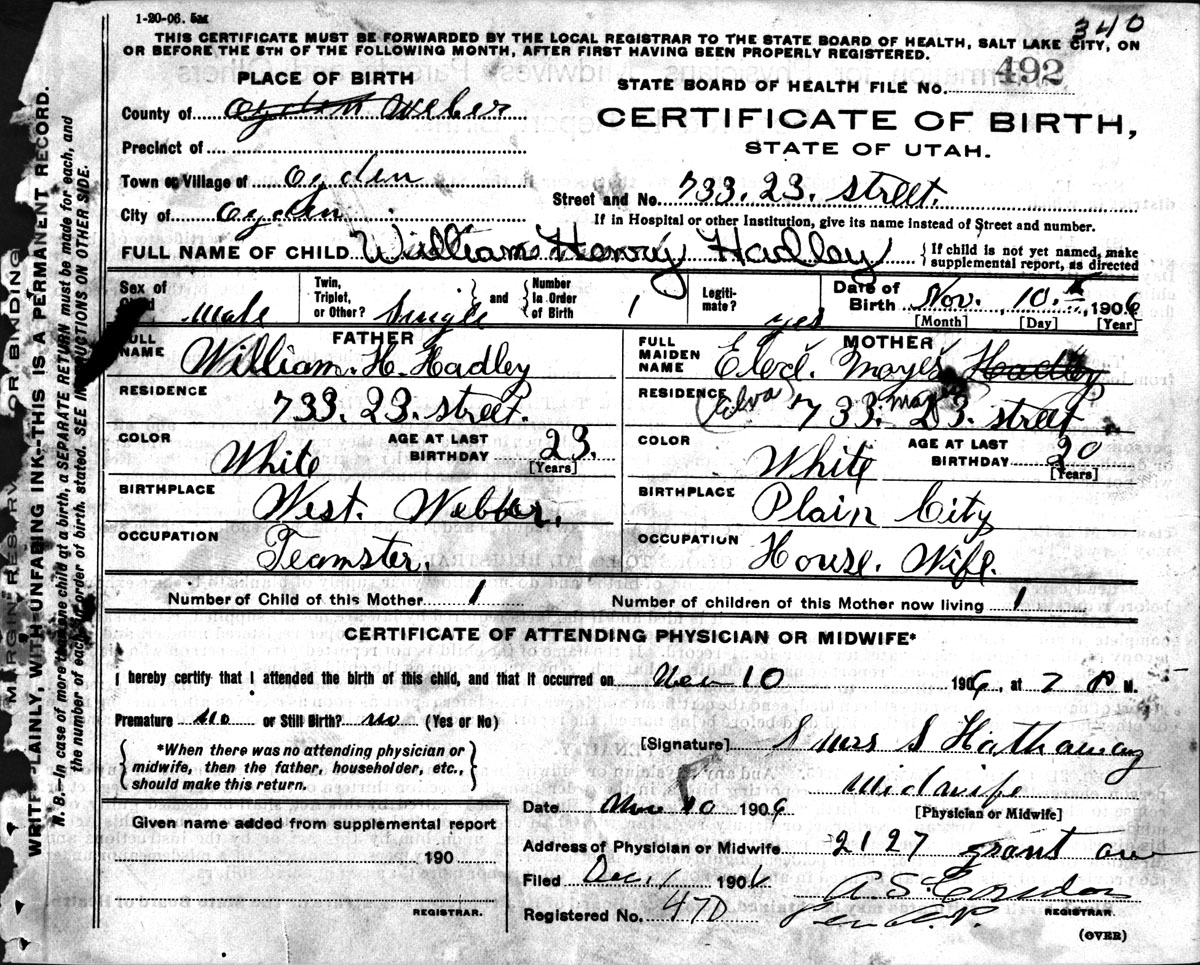 1-20-06. 5M
340
THIS CERTIFICATE MUST BE FORWARDED BY THE LOCAL REGISTRAR TO THE STATE BOARD OF HEALTH, SALT LAKE CITY, ON
OR BEFORE THE 5TH OF THE FOLLOWING MONTH, AFTER FIRST HAVING BEEN PROPERLY REGISTERED.
PLACE OF BIRTH
STATE BOARD OF HEALTH FILE NO. 492
County of Ogden Weber
CERTIFICATE OF BIRTH,
STATE OF UTAH.
Precinct of
Town or Village of Ogden
Street and No. 733. 23. street.
City of Ogden
If in Hospital or other Institution, give its name instead of Street and number.
FULL NAME OF CHILD William Henry Hadley
If child is not yet named, make
supplemental report, as directed
Sex of Child Male
Twin, Triplet, or Other? Single
and Number in Order of Birth 1
Legitimate? yes
Date of Birth Nov. 10. 1906
[Month] [Day] [Year]
FATHER
FULL NAME William. H. Hadley
MOTHER
FULL MAIDEN NAME Mayes Hadley
RESIDENCE 733. 23. street.
RESIDENCE 733. 23. street
(Elva May
COLOR White
AGE AT LAST BIRTHDAY 23.
[Years]
COLOR White
AGE AT LAST BIRTHDAY 20
[Years]
BIRTHPLACE West. Webber.
BIRTHPLACE Plain City
OCCUPATION Teamster.
OCCUPATION House. Wife.
Number of Child of this Mother 1
Number of children of this Mother now living 1
CERTIFICATE OF ATTENDING PHYSICIAN OR MIDWIFE*
I hereby certify that I attended the birth of this child, and that it occurred on Nov 10 1906, at 7 P M.
Premature no or Still Birth? no (Yes or No)
*When there was no attending physician or
midwife, then the father, householder, etc.,
should make this return.
[Signature] Mrs S Hathaway
Midwife
[Physician or Midwife]
Date Nov 10 1906
Given name added from supplemental report
190
REGISTRAR.
Address of Physician or Midwife 2127 grant ave
Filed Dec 1 1906
REGISTRAR.
Registered No. 470
(OVER)
MARGIN RESERVED FOR BINDING
WRITE PLAINLY, WITH UNFADING INK—THIS IS A PERMANENT RECORD.
N. B.—In case of more than one child at a birth, a SEPARATE RETURN must be made for each, and
the number of each, in order of birth, stated. SEE INSTRUCTIONS ON OTHER SIDE.